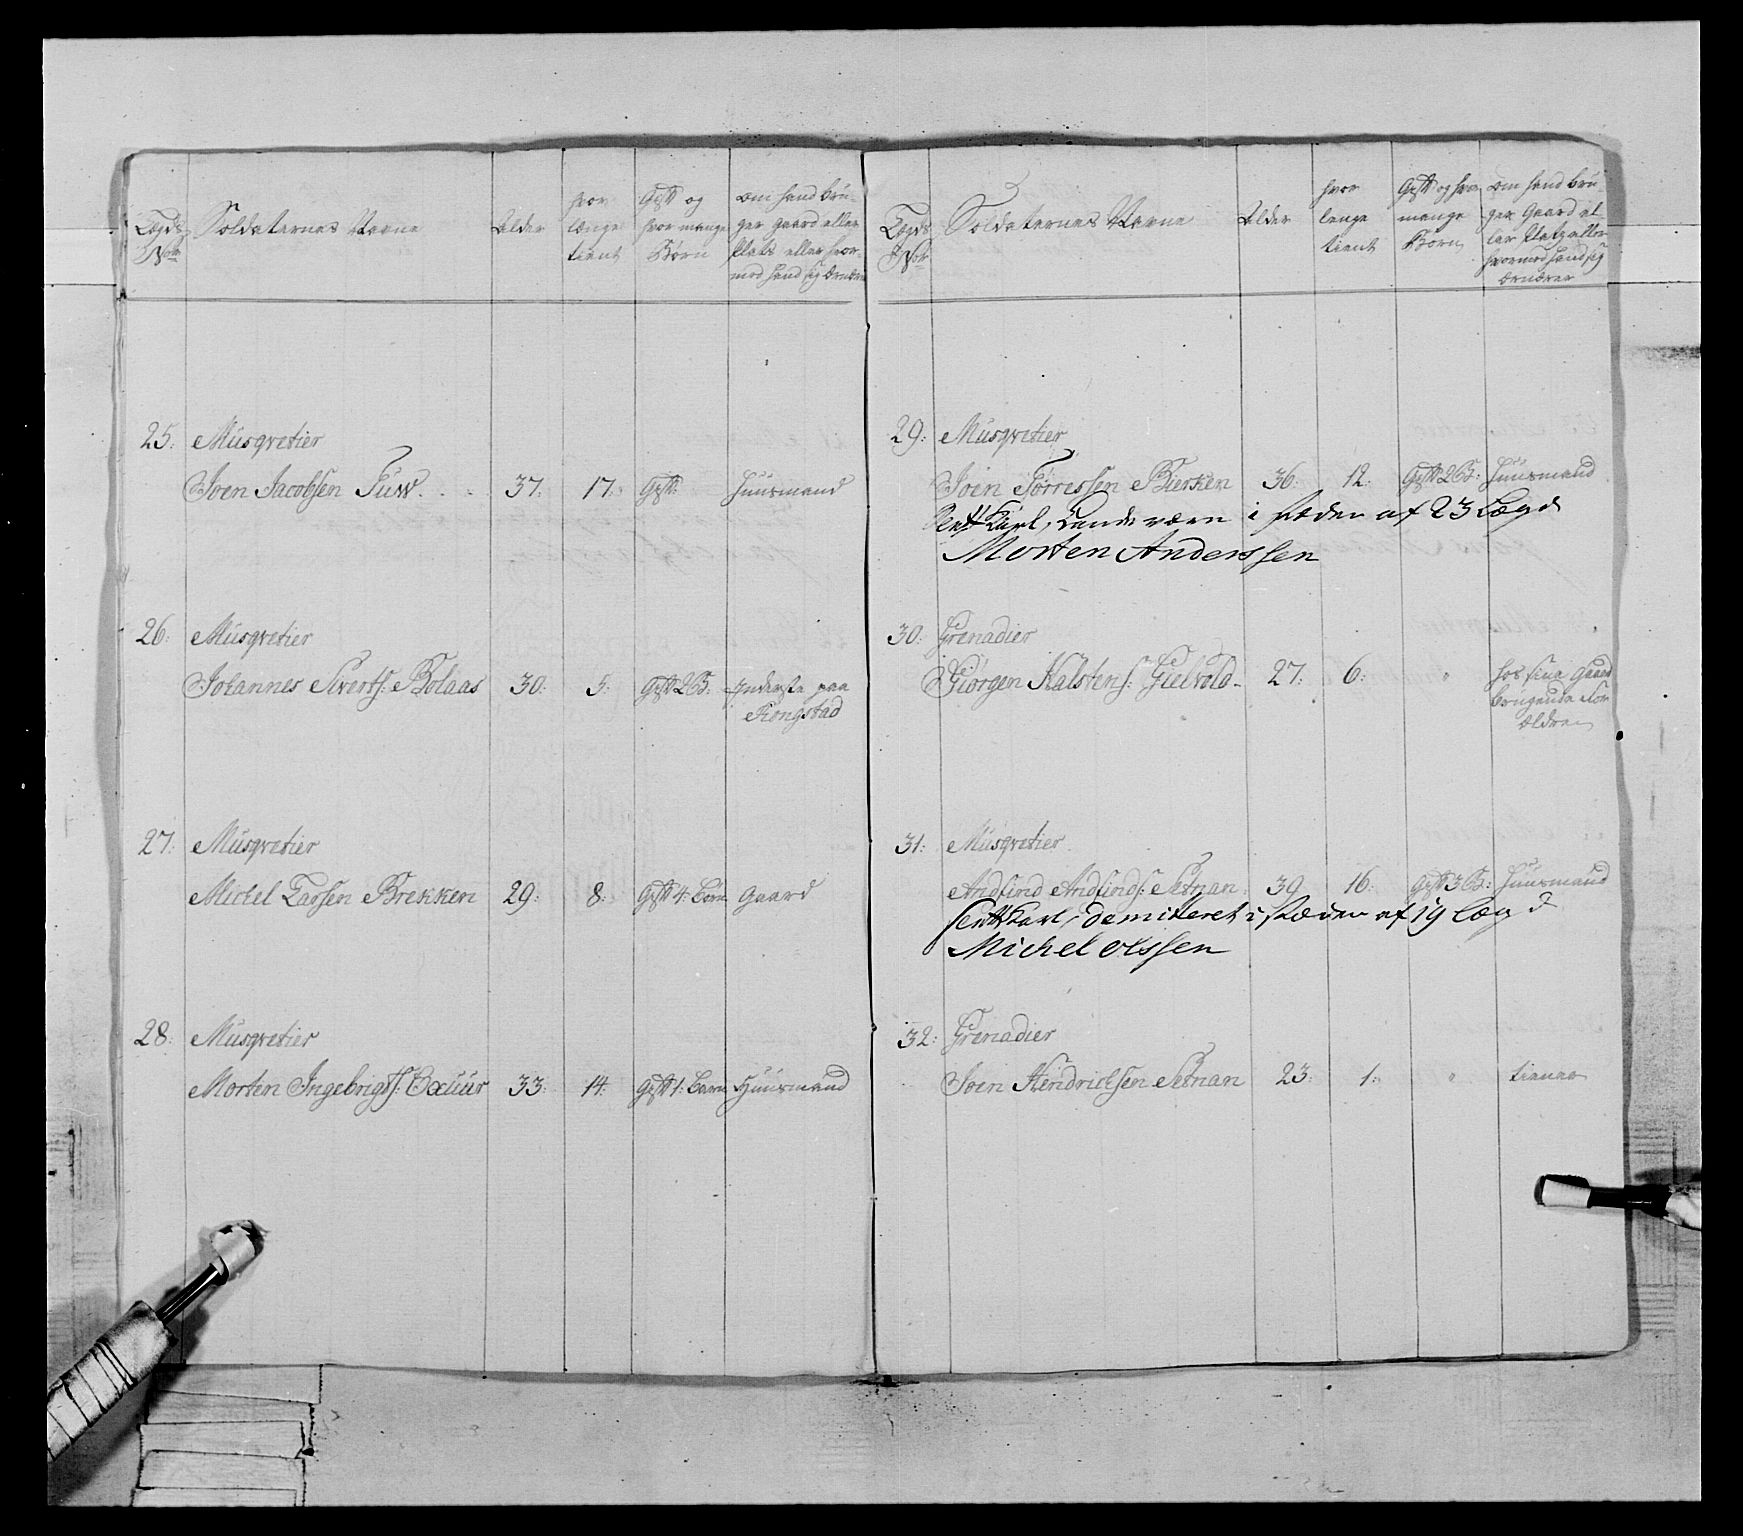 Lægds
No
Soldaternes Navne
Alder
hvor
længe
tient
Gift og
hvor mange
Børn
om hand bru-
ger Gaard eller
Plads eller hvor-
med hand sig Ernærer
25: Musqvetier
Joen Jacobsen Tuw . . . 37: 17: Gift: Huusmand
26: Musqvetier
Johannes Siverts: Bolaas 30: 5: Gift 2 B: Inderste paa
Kongstad
27: Musqvetier
Michel Larssen Brekken 29: 8: Gift 4: Børn Gaard
28: Musqvetier
Morten Ingebrigts: Oxuur 33: 14: Gift 1: Barn Huusmand
Lægds
No
Soldaternes Navne
Alder
hvor
lenge
tient
Gift og hvor
mange
Børn
om hand bru-
ger Gaard el-
ler Plads eller
hvormed hand sig
Ernærer
29: Musqvetier
Joen Tørressen Bierken 36: 12: Gift 2 B: Huusmand
Karl, Landeværn i stæden af 23 Lægd
Morten Anderssen
30: Grenadier
Giørgen Halstens: Fielvold - 27: 6: " hos sine Gaard
brugende For
Ældre
31: Musqvetier
Andfind Andfinds: Setnan 39 16: Gift 3 B: Huusmand
Karl, demiteret i stæden af 19 Lægd
Michel olssen
32: Grenadier
Joen Hendrichsen Setnan 23: 1: " tiener